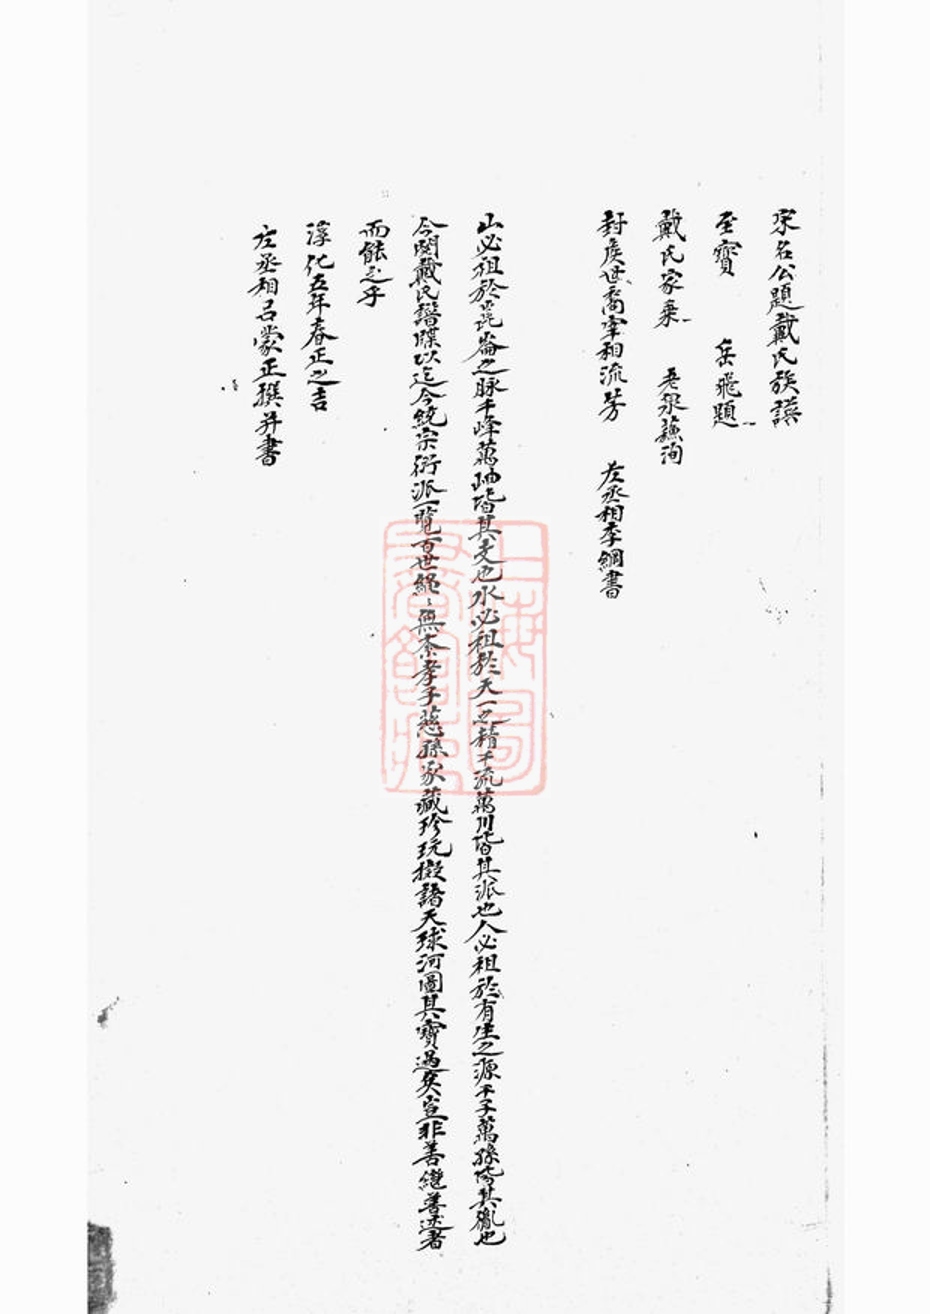 宋名公題戴氏族譜
至寶　岳飛題
戴氏家乘　老泉蘇洵
封侯世裔宰相流芳　左丞相李綱書
山必祖於崑崙之脉千峰萬岫皆其支也水必祖於天一之精千流萬川皆其派也人必祖於有生之源千子萬孫皆其胤也
今閱戴氏譜牒以迄今統宗衍派一覽百世繩〻無紊孝子慈孫家藏珍玩擬諸天球河圖其寶過矣豈非善繼善述者
而能之乎
淳化五年春正之吉
左丞相呂蒙正撰并書
上海圖書館藏